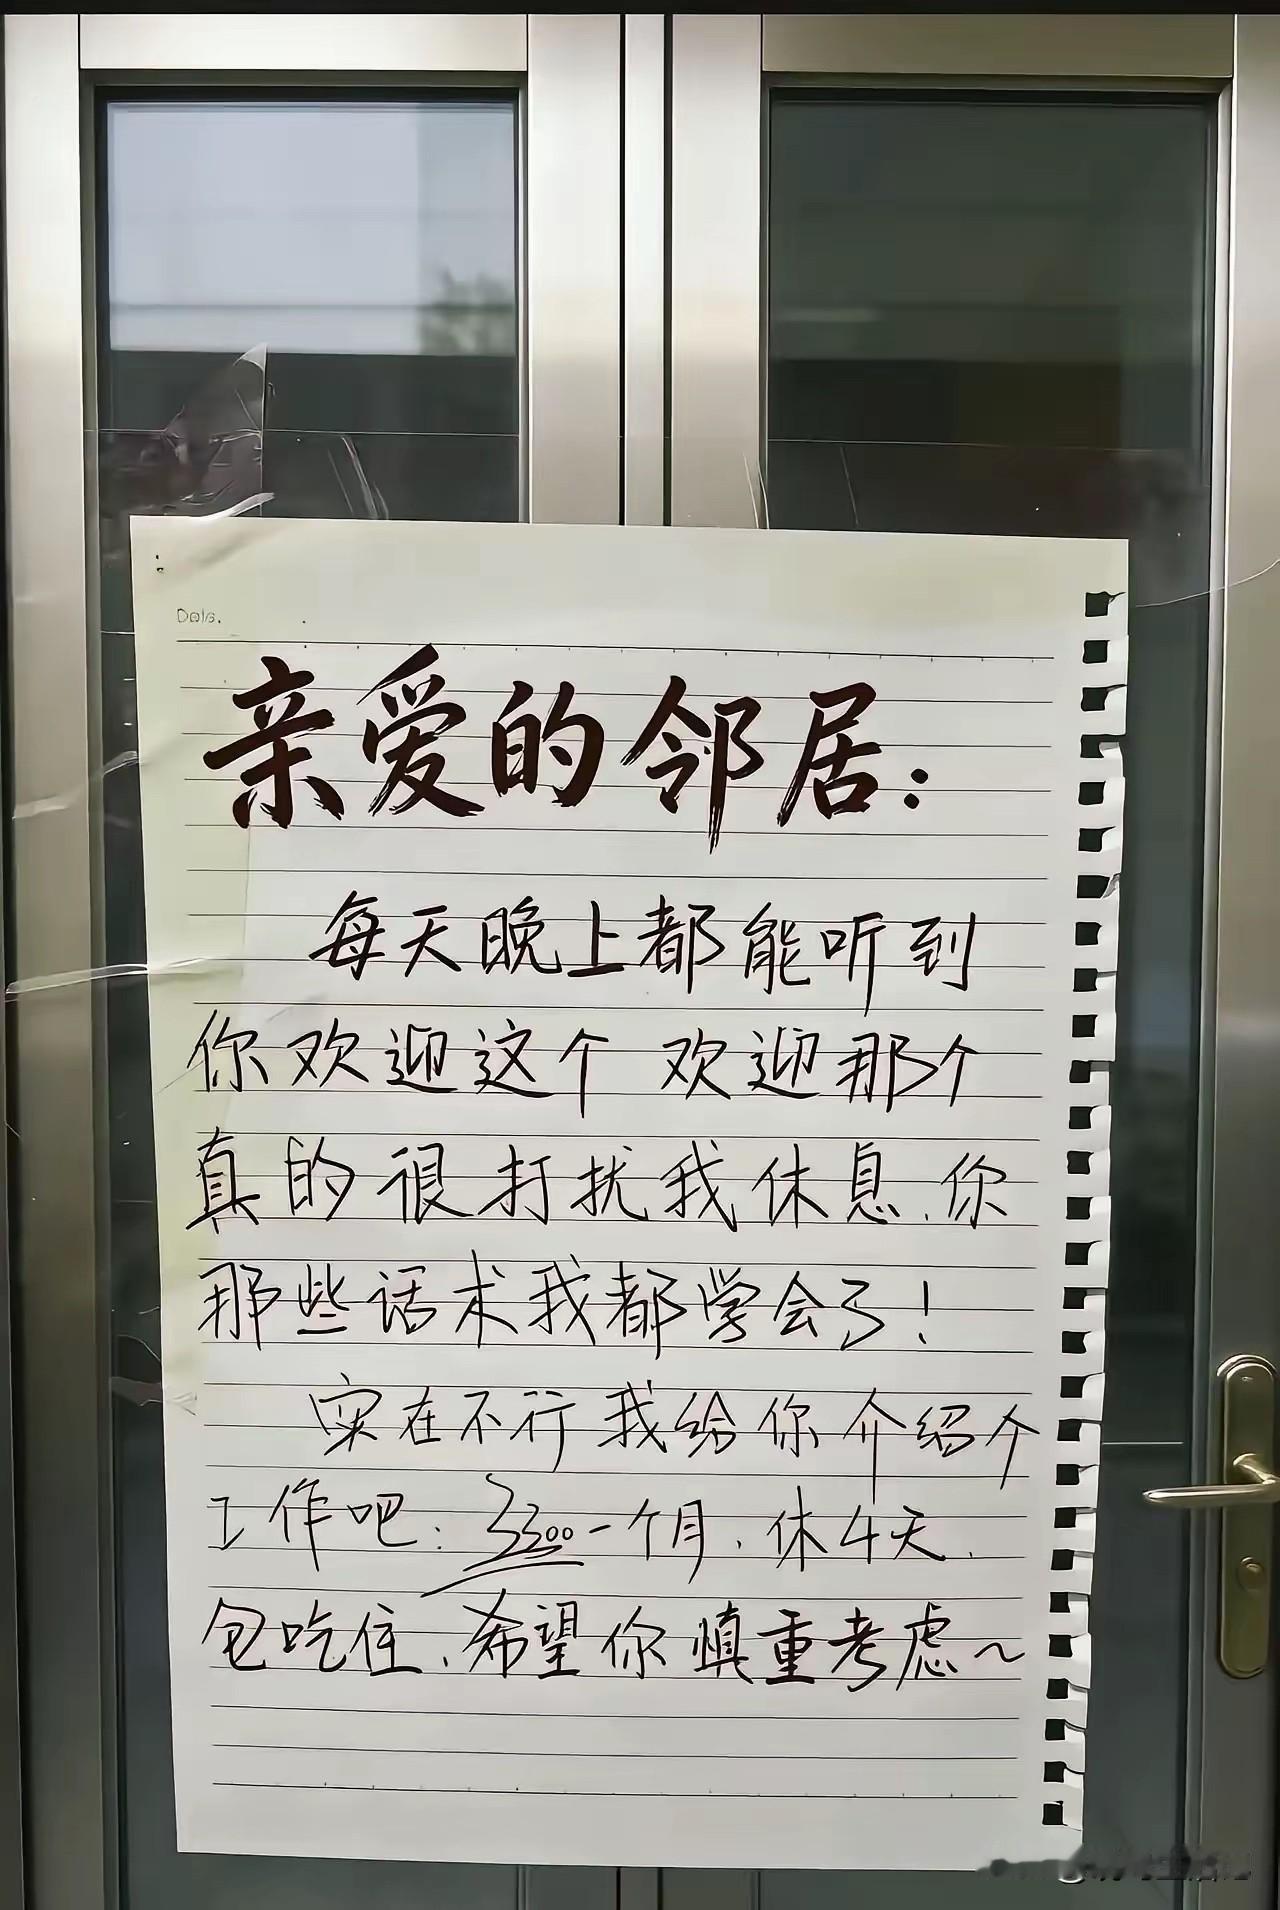 Date.
亲爱的邻居:
每天晚上都能听到
你欢迎这个 欢迎那个
真的很打扰我休息.你
那些话术我都学会了!
实在不行我给你介绍个
工作吧:3300一个月.休4天.
包吃住.希望你慎重考虑~